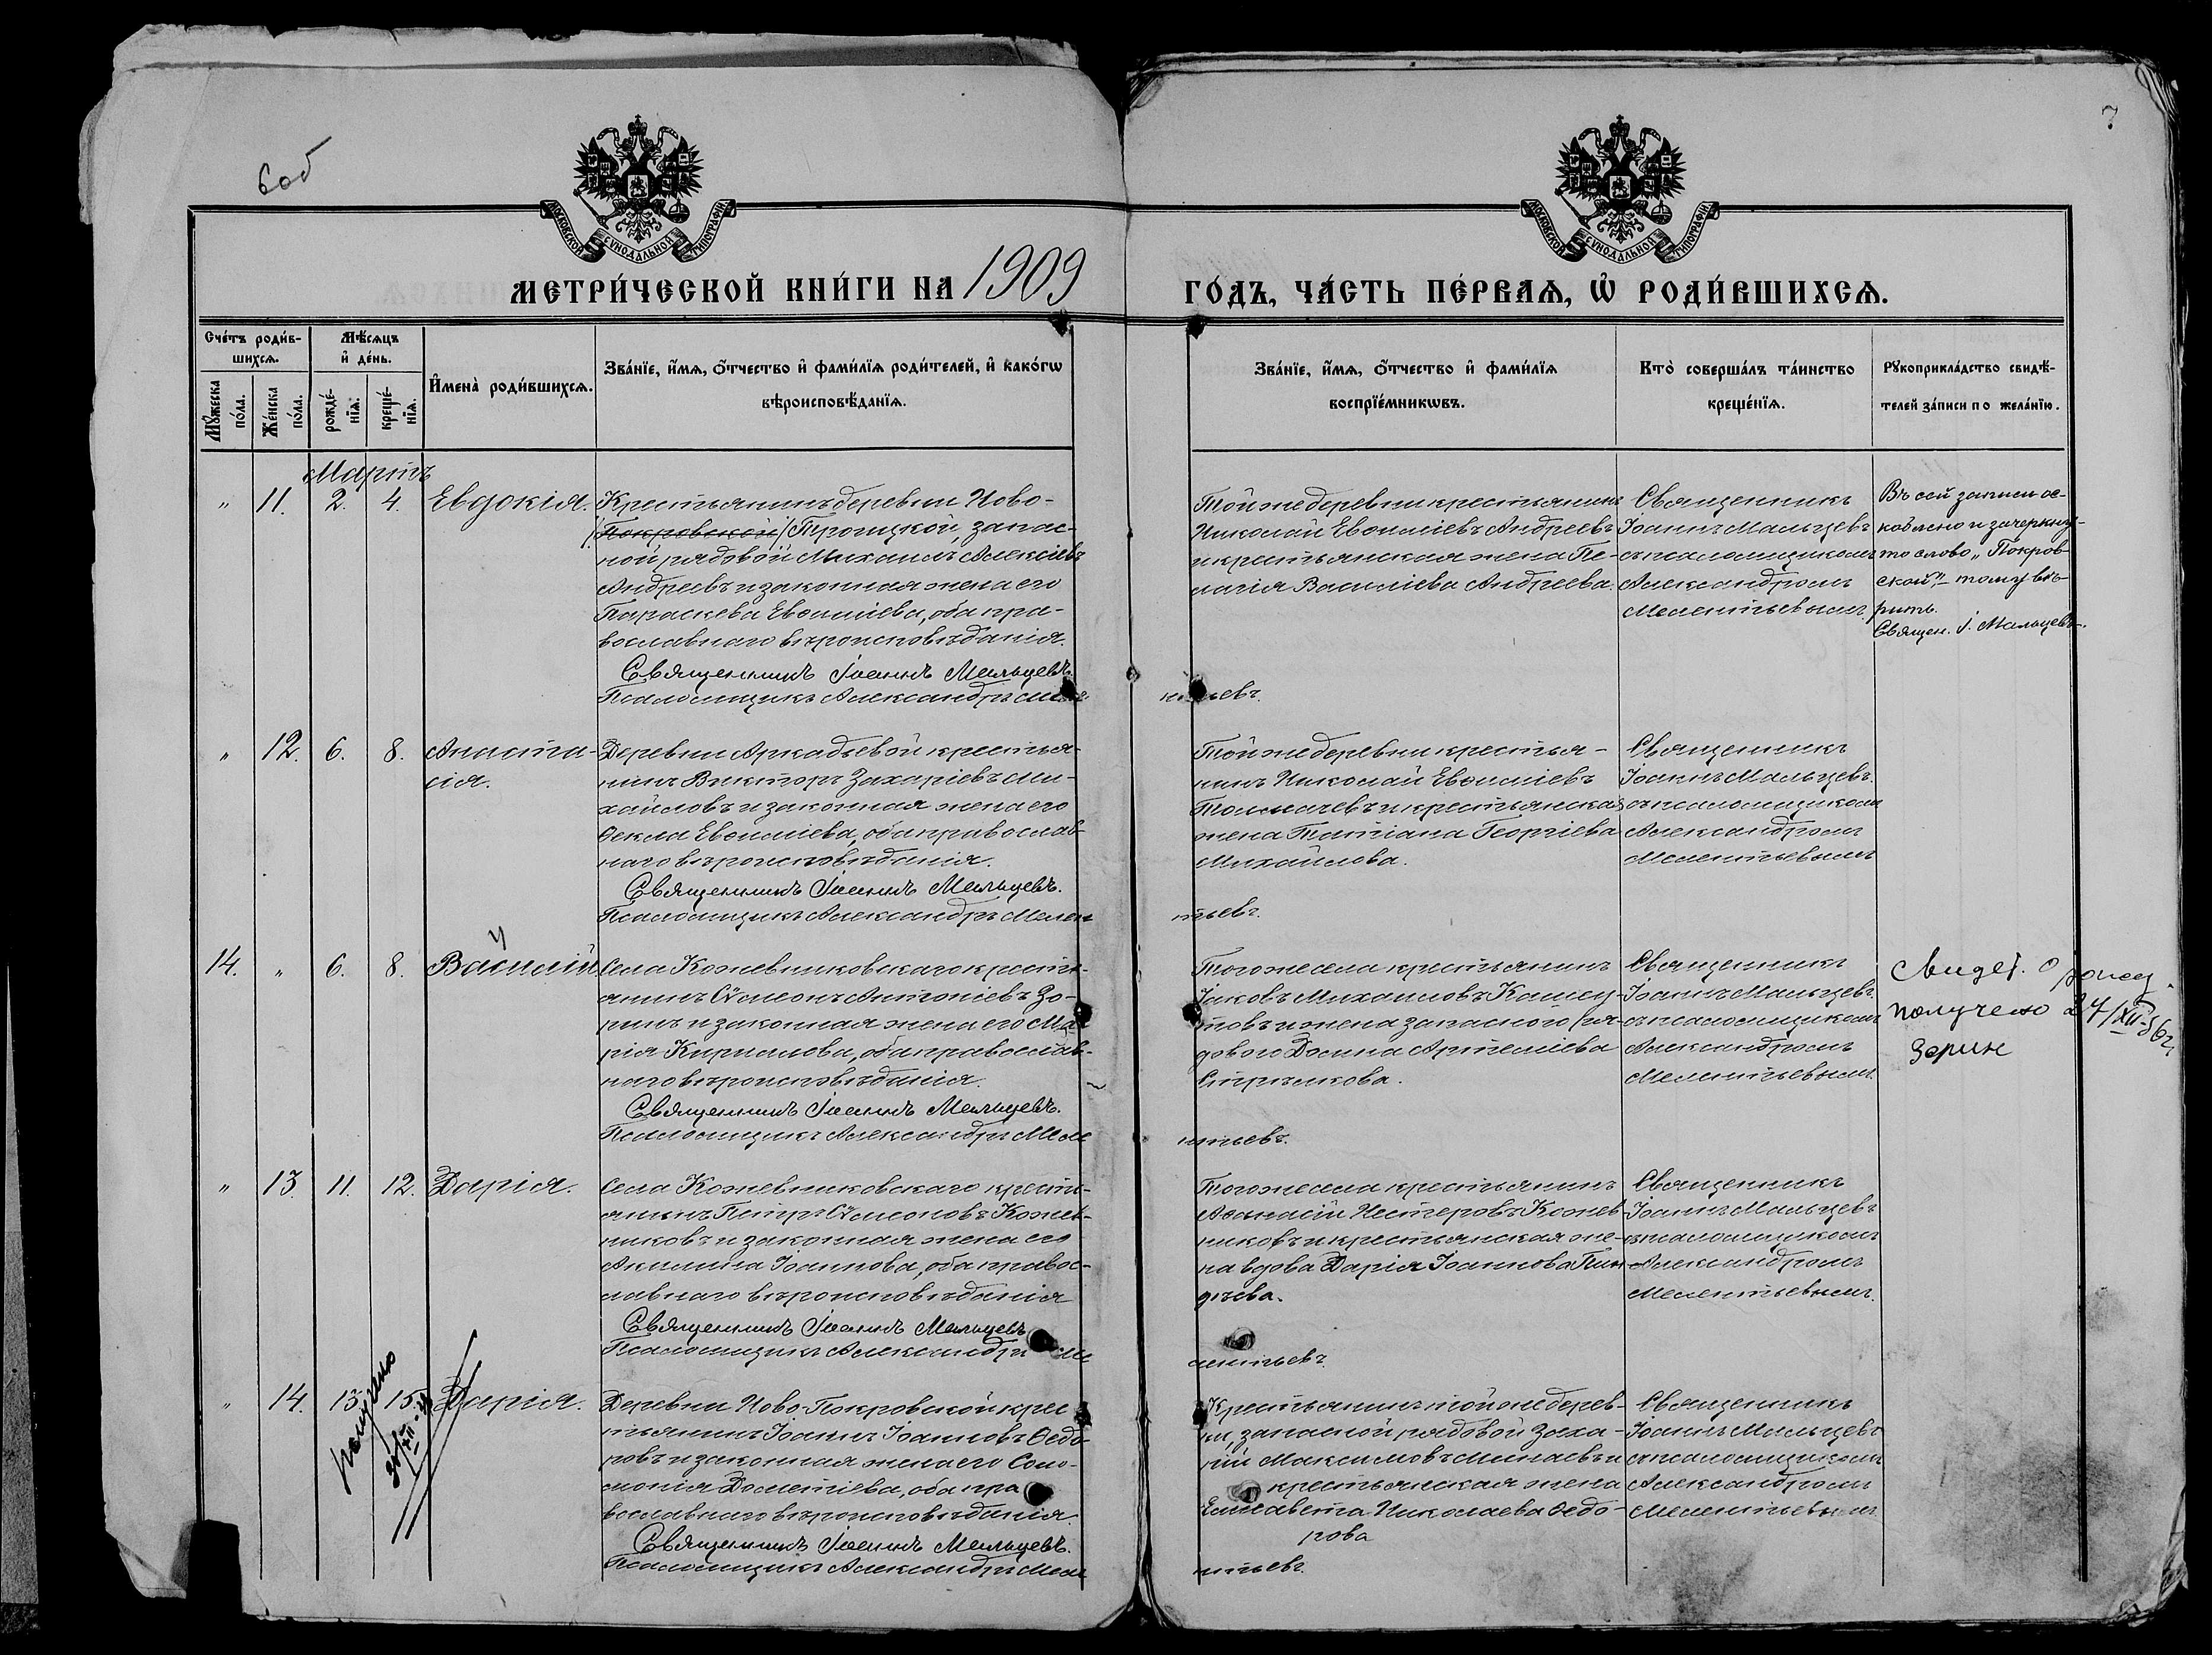 6об
7
МОСКОВСКОЙ СУНОДАЛЬНОЙ ТИПОГРАФІИ
МОСКОВСКОЙ СУНОДАЛЬНОЙ ТИПОГРАФІИ
МЕТРИ́ЧЕСКОЙ КНИ́ГИ НА 1909 ГО́ДЪ, ЧА́СТЬ ПЕ́РВАѦ, Ѡ҆ РОДИ́ВШИХСѦ.
Сче́тъ роди́в-
шихсѧ.
Мꙋ́жеска по́ла.
Же́нска по́ла.
Мѣ́сѧцъ и҆ де́нь.
рожде́-
нїѧ.
креще́-
нїѧ.
И҆мена̀ роди́вшихсѧ.
Зва́нїе, и҆́мѧ, ѻ҆́тчество и҆ фами́лїѧ роди́телей, и҆ како́гѡ
вѣроисповѣ́данїѧ.
Зва́нїе, и҆́мѧ, ѻ҆́тчество и҆ фами́лїѧ
воспрїе́мникѡвъ.
Кто̀ соверша́лъ та́инство
креще́нїѧ.
Рꙋкоприкла́дство свидѣ́-
телей за́писи по жела́нїю.
Мартъ
" 11. 2. 4. Евдокія.
Крестьянинъ деревни Ново-
/Покровской/ Троицкой, запас-
ной рядовой Михаилъ Алексіевъ
Андреевъ и законная жена его
Параскева Евѳиміева, оба пра-
вославнаго вѣроисповѣданія.
Священникъ Іоаннъ Мальцевъ.
Псаломщикъ Александръ Меле-
нтьевъ.
Той же деревни крестьянинъ
Николай Евѳиміевъ Андреевъ
и крестьянская жена Пе-
лагія Василіева Андреева.
Священникъ
Іоаннъ Мальцевъ
съ псаломщикомъ
Александромъ
Мелентьевымъ.
Въ сей записи ос-
коблено и зачеркну-
то слово „Покров-
ской" – тому вѣ-
рить.
Священ. І. Мальцевъ.
" 12. 6. 8. Анаста-
сія.
Деревни Аркадьевой крестья-
нинъ Викторъ Захаріевъ Ми-
хайловъ и законная жена его
Ѳекла Евѳиміева, оба православ-
наго вѣроисповѣданія.
Священникъ Іоаннъ Мальцевъ.
Псаломщикъ Александръ Мелен
тьевъ.
Той же деревни крестья-
нинъ Николай Евѳиміевъ
Толмачевъ и крестьянская
жена Татіана Георгіева
Михайлова.
Священникъ
Іоаннъ Мальцевъ.
съ псаломщикомъ
Александромъ
Мелентьевымъ
14. " 6. 8. Василій
Села Кожевниковскаго кресть-
янинъ Сѵмеонъ Антоніевъ Зо-
ринъ и законная жена его Ма-
рія Кириллова, оба православ-
наго вѣроисповѣданія.
Священникъ Іоаннъ Мальцевъ.
Псаломщикъ Александръ Меле
нтьевъ.
Того же села крестьянинъ
Іаковъ Михаиловъ
и жена запасного ря-
дового Домна Артеміева
Стрѣлкова.
Священникъ
Іоаннъ Мальцевъ.
съ псаломщикомъ
Александромъ
Мелентьевымъ.
Свидет. о рожд.
получено 27/XII-56г.
Зорин
" 13. 11. 12. Дарія.
Села Кожевниковскаго кресть-
янинъ Петръ Сѵмеоновъ Кожев-
никовъ и законная жена его
Акилина Іоаннова, оба правос-
лавнаго вѣроисповѣданія
Священникъ Іоаннъ Мальцевъ
Псаломщикъ Александръ Ме
лентьевъ.
Того же села крестьянинъ
Аѳанасій Нестеровъ Кожев-
никовъ и крестьянская же-
на вдова Дарія Іоаннова
Священникъ
Іоаннъ Мальцевъ
съ псаломщикомъ
Александромъ
Мелентьевымъ.
" 14. 13. 15. Дарія.
получено
Деревни Ново-Покровской крес
тьянинъ Іоаннъ Іоанновъ Ѳедо-
ровъ и законная жена его Соло-
монія Дометіева, оба пра
вославнаго вѣроисповѣданія.
Священникъ Іоаннъ Мальцевъ.
Псаломщикъ Александръ Меле
нтьевъ.
Крестьянинъ той же дерев-
ни, запасной рядовой Заха-
рій Максимовъ Минаевъ и
крестьянская жена
Елисавета Николаева Ѳедо-
рова
Священникъ
Іоаннъ Мальцевъ
съ псаломщикомъ
Александромъ
Мелентьевымъ